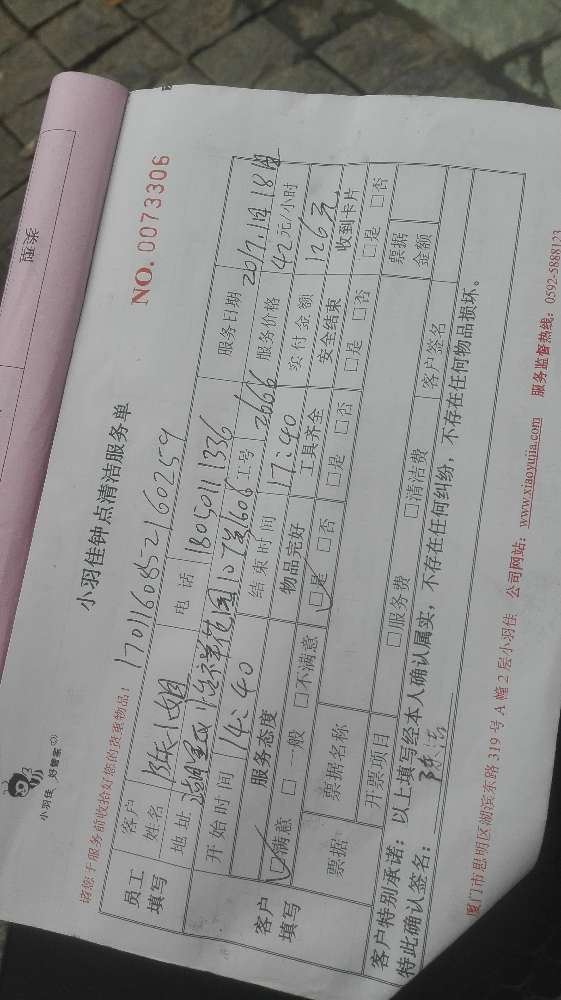 NO. 0073306
小羽佳 好管家
小羽佳钟点清洁服务单
请您于服务前收拾好您的贵重物品: 1701160852160259
员工填写 客户姓名 陈小姐 电话 18050111336 服务日期 2017.1月18日
地址 工号 2666 服务价格 42元/小时
开始时间 14:40 结束时间 17:40 实付金额 126元
客户填写 服务态度 物品完好 工具齐全 安全结束 收到卡片
☑满意 □一般 □不满意 ☑是 □否 □是 □否 □是 □否 □是 □否
票据 票据名称 □服务费 □清洁费 票据金额
开票项目 客户签名
客户特别承诺: 以上填写经本人确认属实,不存在任何纠纷,不存在任何物品损坏。
特此确认签名:
厦门市思明区湖滨东路 319 号 A 幢 2 层小羽佳 公司网站: www.xiaoyujia.com 服务监督热线: 0592-5888123